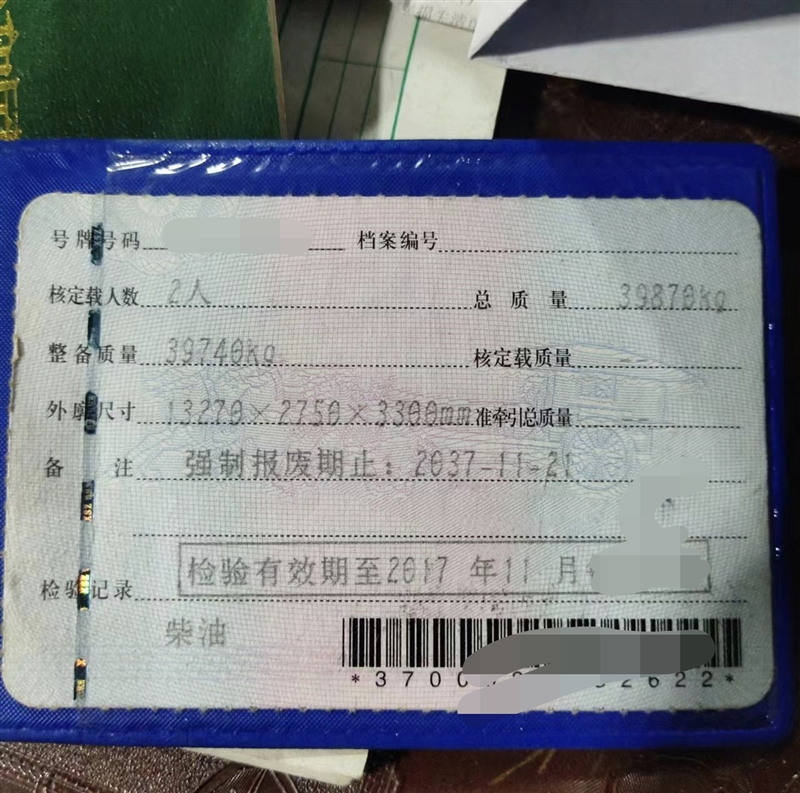 号牌号码 档案编号
核定载人数 2人 总质量 39870kg
整备质量 39740kg 核定载质量 --
外廓尺寸 13270×2750×3300mm 准牵引总质量 --
备注 强制报废期止：2037-11-21
检验记录 检验有效期至2017 年11 月
柴油
*3700 2622*